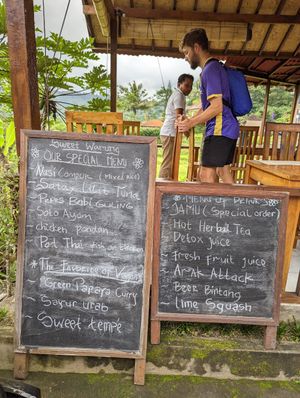 Sweet Warung
OUR SPECIAL MENU
Nasi Campur (Mixed rice)
Satay Lilit Tuna
Pork Babi Guling
Soto Ayam
chicken Pandan
Pad Thai fish or chicken
The Favorite of Vegan
~ Green Papaya Curry
~ Sayur urab
~ Sweet tempe
MENU OF DETOX
JAMU (Special order)
Hot Herbal Tea
~ Detox juice
~ Fresh Fruit juice
~ Arak Attack
~ Beer Bintang
~ Lime Squash